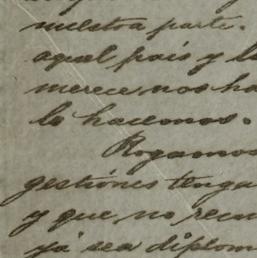 nuestra parte.
aquel país y l
merece nos ha
lo hacemos.
Rogamos
gestiones tenga
y que no recu
ya sea diplom